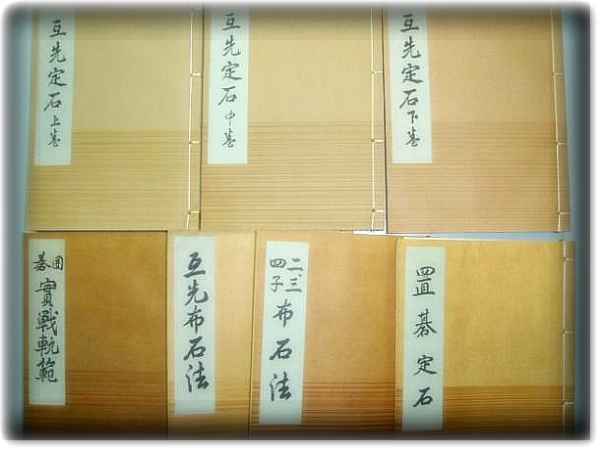 互先定石上巻
互先定石中巻
互先定石下巻
囲碁實戰軌範
互先布石法
二、三四子布石法
置碁定石